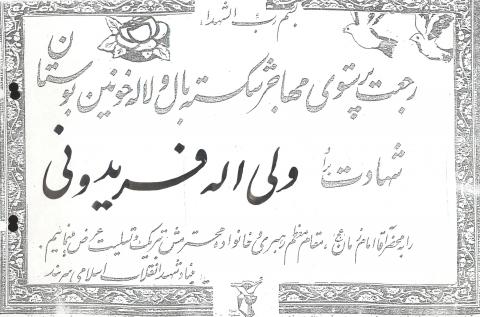 بسم رب الشهداء
رجعت پرستوی مهاجر شکسته بال و لاله خونین بوستان
شهادت برادر ولی اله فریدونی
را به محضر آقا امام زمان (عج)، مقام معظم رهبری و خانواده محترمش تبریک و تسلیت عرض مینمائیم.
بنیاد شهید انقلاب اسلامی